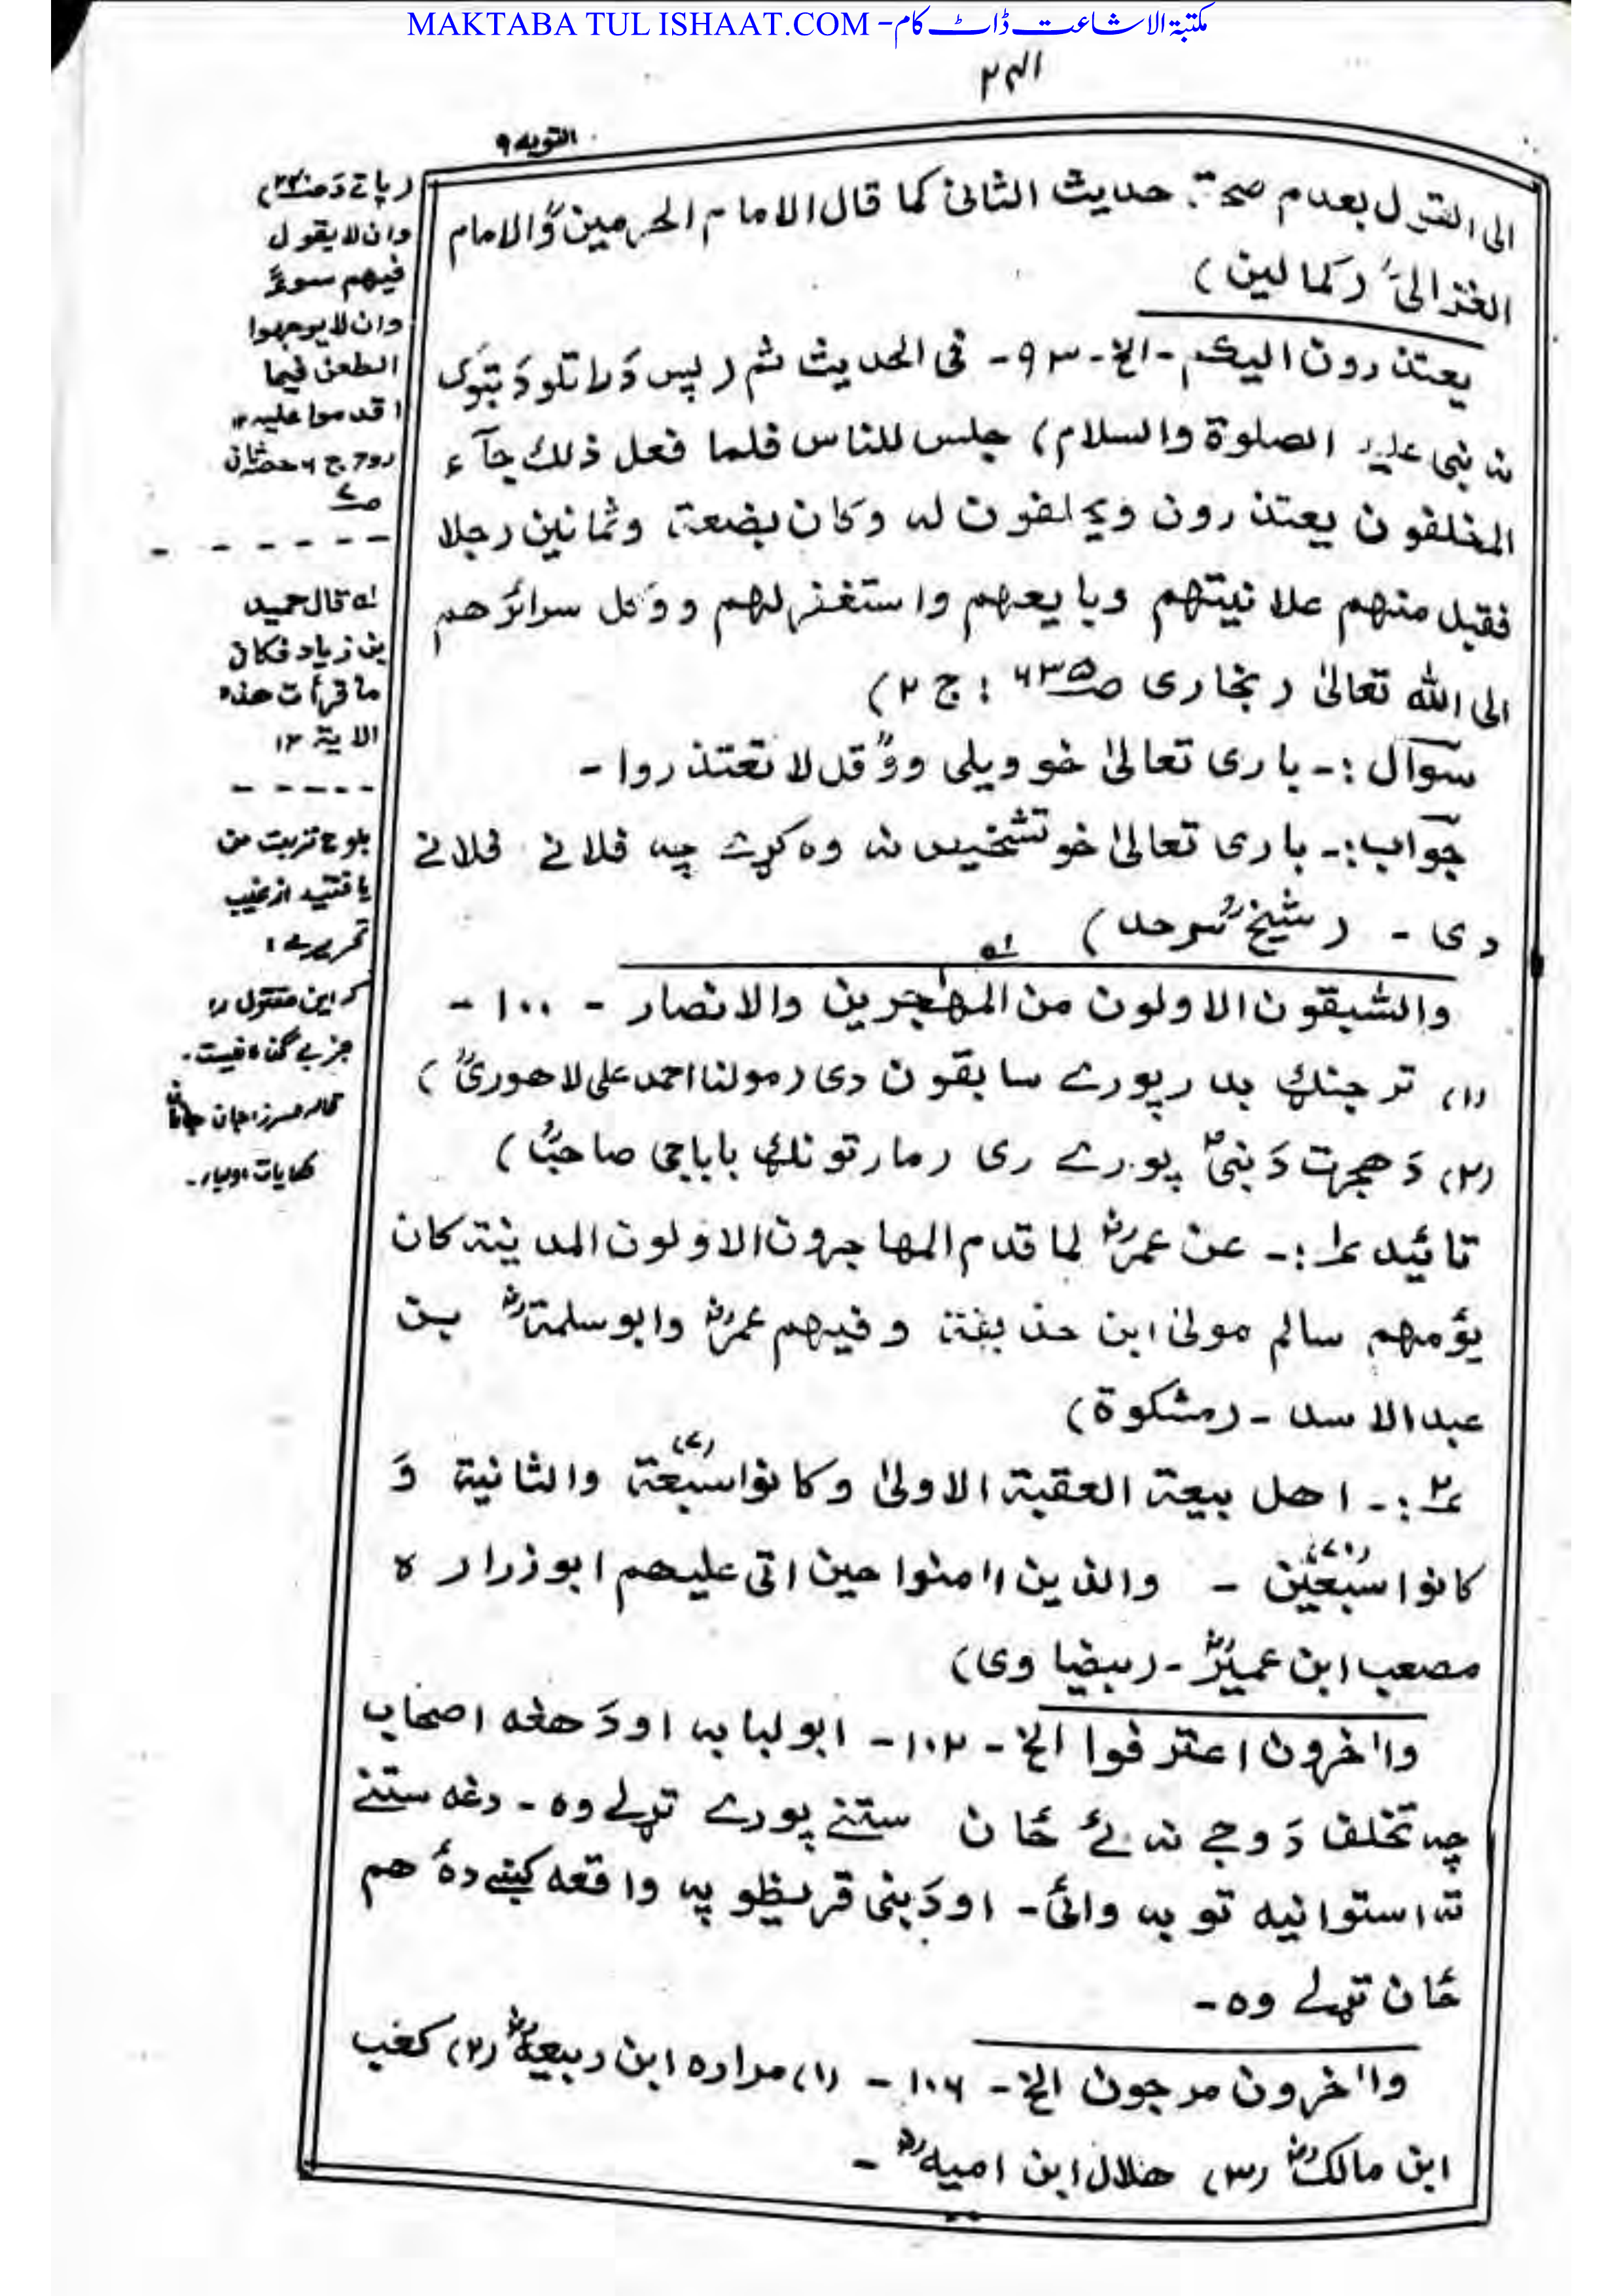 MAKTABA TUL ISHAAT.COM - مکتبۃ الاشاعت ڈاٹ کام
التوبه ٩
الی القول بعدم صحة حدیث الثانی کما قال الامام الحرمینؒ والامام
الغزالیؒ (کمالین)
یعتذرون الیکم - الخ - ٩٣ - فی الحدیث ثم (پس دَ راتلو دَ تبوک
نه نبی علیه الصلوة والسلام) جلس للناس فلما فعل ذلك جآء
المخلفون یعتذرون ویحلفون له وکان بضعة وثمانین رجلا
فقبل منهم علانیتهم وبایعهم واستغفر لهم ووکل سرائرهم
الی الله تعالیٰ (بخاری صـ٦٣٥ : ج ٢)
سوال :- باری تعالیٰ خو ویلی وو قل لا تعتذروا -
جواب :- باری تعالیٰ خو تشخیص نه وه کړے چه فلانے فلانے
دی - (شیخ سرحد)
والسٰبقون الاولون من المهٰجرین والانصار - ١٠٠ -
(١) تر جنګ بدر پورے سابقون دی (مولنا احمد علی لاهوریؒ)
(٢) دَ هجرت دَ نبیؐ پورے ری (مارتونګ باباجی صاحبؒ)
تائید ١ :- عن عمرؓ لما قدم المهاجرون الاولون المدینة کان
یؤمهم سالم مولیٰ ابن حذیفة وفیهم عمرؓ وابو سلمةؓ بن
عبد الاسد - (مشکوة)
٢ :- اهل بیعة العقبة الاولیٰ وکانوا سبعة (٧) والثانیة وَ
کانوا سبعین (٧٠) - والذین اٰمنوا حین اتی علیهم ابو زراره
مصعب ابن عمیرؓ - (بیضاوی)
واٰخرون اعترفوا الخ - ١٠٢ - ابو لبابه او دَ هغه اصحاب
چه تخلف دَ وجے نه ئے ځان ستنے پورے تړلے وه - دغه ستنے
ته استوانیه توبه وائی - او دَ بنی قریظو په واقعه کښے ده هم
ځان تړلے وه -
واٰخرون مرجون الخ - ١٠٦ - (١) مراره ابن ربیعهؓ (٢) کعب
ابن مالکؓ (٣) هلال ابن امیهؓ -
وان لا یقول
فیهم سوءً
وان لا یوجهوا
الطعن فیما
اقدموا علیه ١٢
له قال حمید
بن زیاد فکان
ما قرأت هذه
الایة ١٢
بلوح تربت من
یافتند از غیب
تحریرے :
که این مقتول را
جز بے گناه نیست .